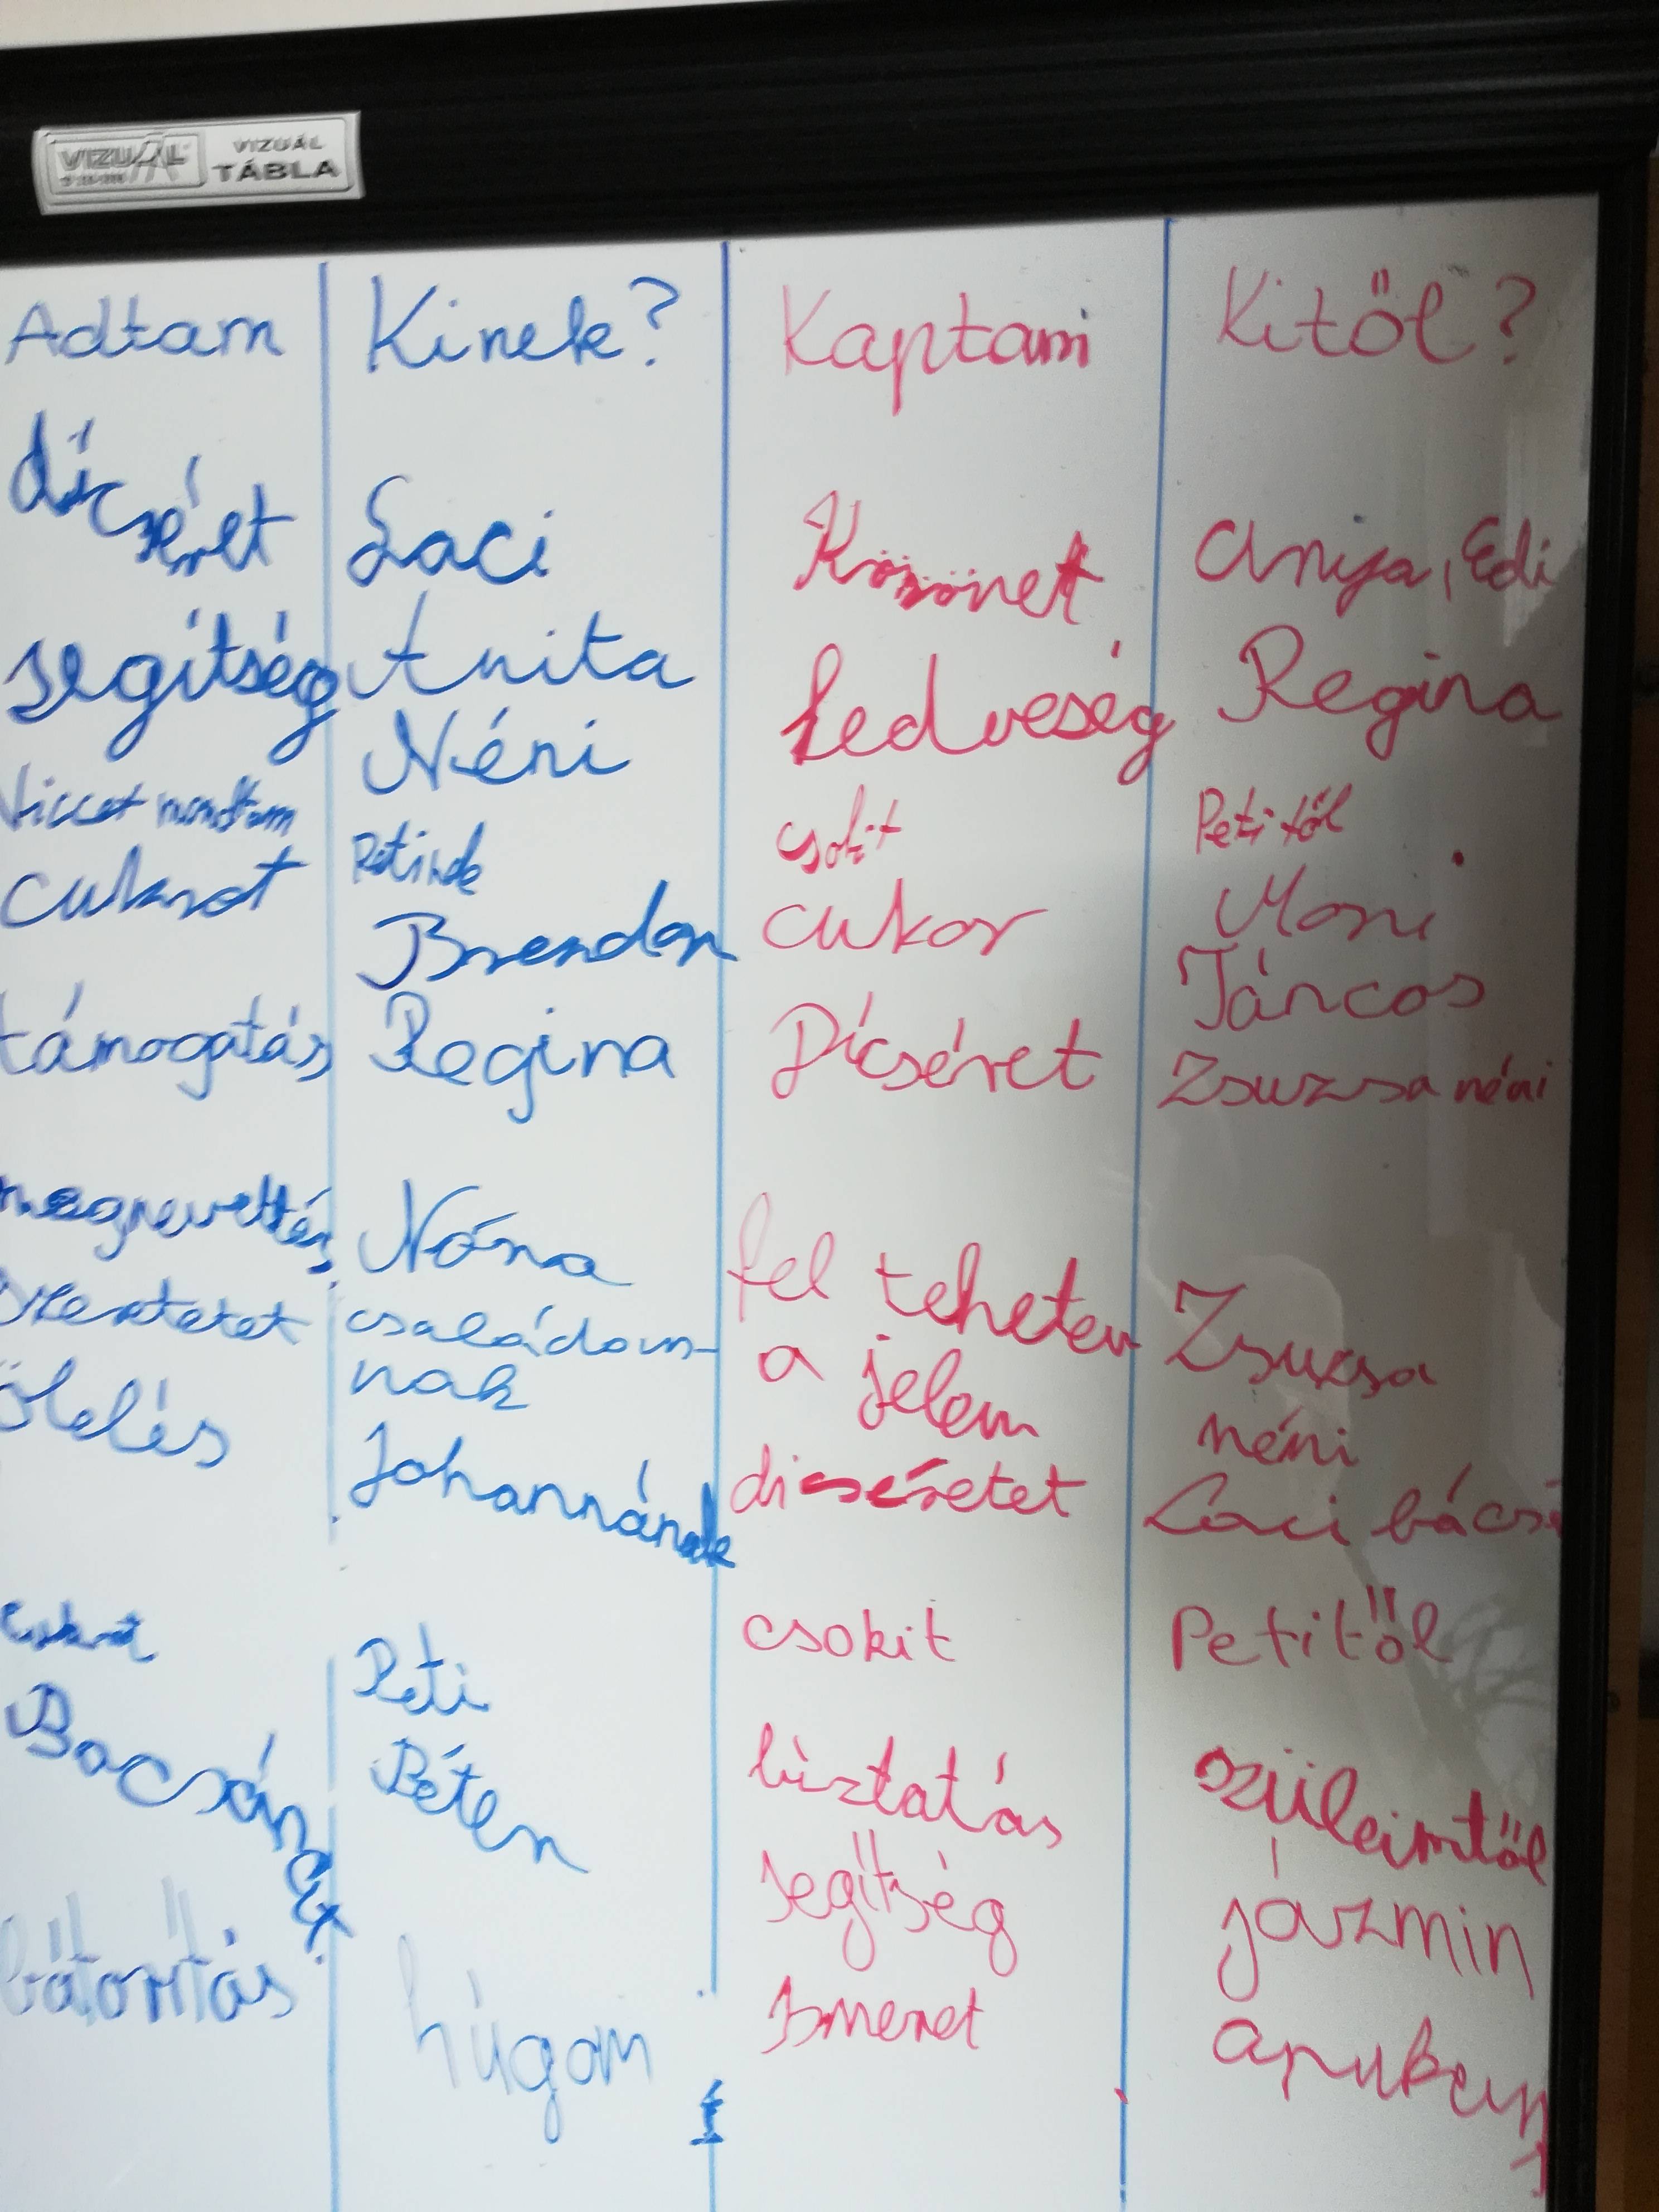 VIZUÁL
VIZUÁL
TÁBLA
Adtam Kinek? Kaptam Kitől?
dícséret Laci Köszönet Anya, Edi
segítség Anita Kedveség Regina
Néni
Viccet mondtam Petinek csokit Petitől
cukrot Brendon cukor Moni
Táncos
támogatás Regina Dícséret Zsuzsa néni
megnevettés Nóna
szeretetet családom- fel tehetem Zsuzsa
nak a jelem néni
ölelés Johannának dicséretet Laci bácsi
Peti csokit Petitől
Bocsánat Béten bíztatás szüleimtől
segítség jázmin
bátorítás húgom Ismeret apukám